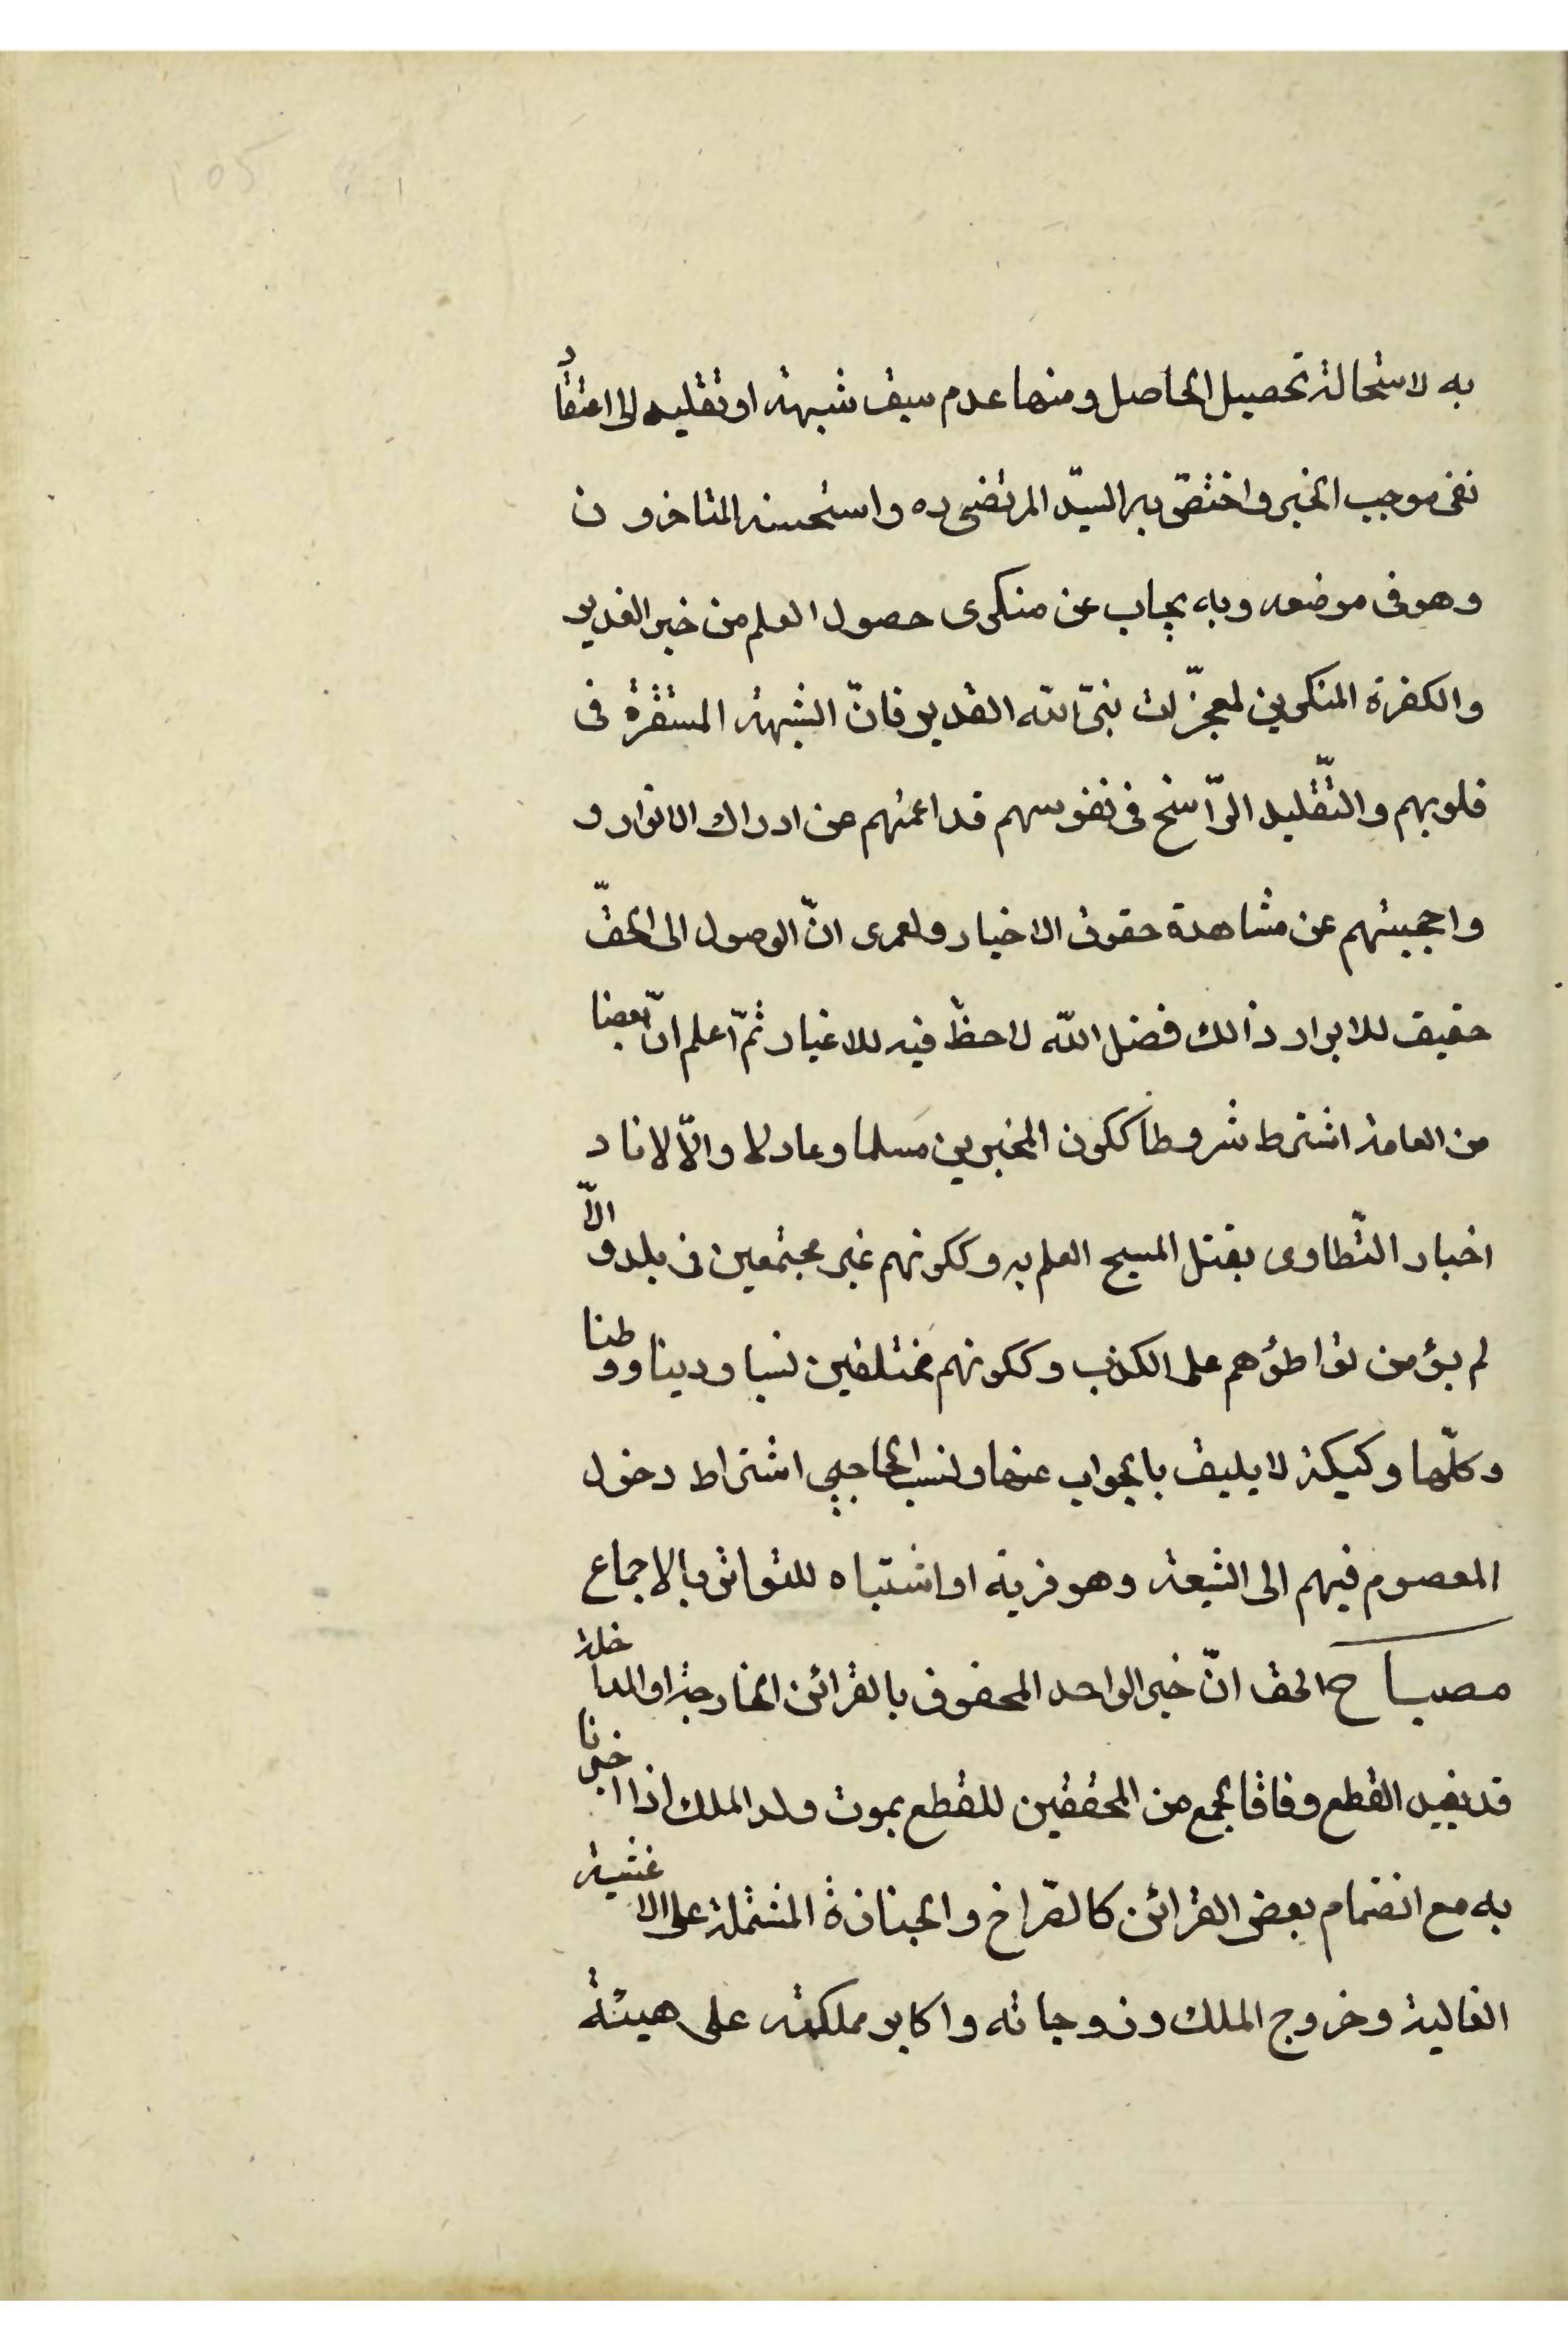 105
به لاستحالة تحصيل الحاصل ومنها عدم سبق شبهة او تقليد الى اعتقاد
نفى موجب الخبر واختصّ به السيّد المرتضى ره واستحسنه المتاخرون
وهو فى موضعه وبه يجاب عن منكرى حصول العلم من خبر الغدير
والكفرة المنكرين لمعجزّات نبىّ الله القدير فانّ الشبهة المستقرة فى
قلوبهم والتّقليد الرّاسخ فى نفوسهم قد اعمتهم من ادراك الانوار و
واحجبتهم عن مشاهدة حقوق الاخيار ولعمرى انّ الوصول الى الحقّ
حقيق للابرار ذالك فضل الله لاحظّ فيه للاغيار ثمّ اعلم انّ بعضا
من العامة اشترط شروطا ككون المخبرين مسلما وعادلا والّا لافاد
اخبار النّطاوى بقتل المسيح العلم به وككونهم غير مجتمعين فى بلد والّا
لم يؤمن تواطؤهم على الكذب وككونهم مختلفين نسبا ودينا ووطنا
وكلّها وكيكة لا يليق بالجواب عنها ونسب الحاجبى اشتراط دخول
المعصوم فيهم الى الشيعة وهو فرية او اشتباه للتواتر بالاجماع
مصباح الحق انّ خبر الواحد المحفوف بالقرائن الخارجة او الداخلة
قد يفيد القطع وفاقا لجمع من المحققين للقطع بموت ولد الملك اذا اخبرنا
به مع انضمام بعض القرائن كالصّراخ والجنازة المشتملة على الاغشية
الغالية وخروج الملك وزوجاته واكابر مملكته على هيئة